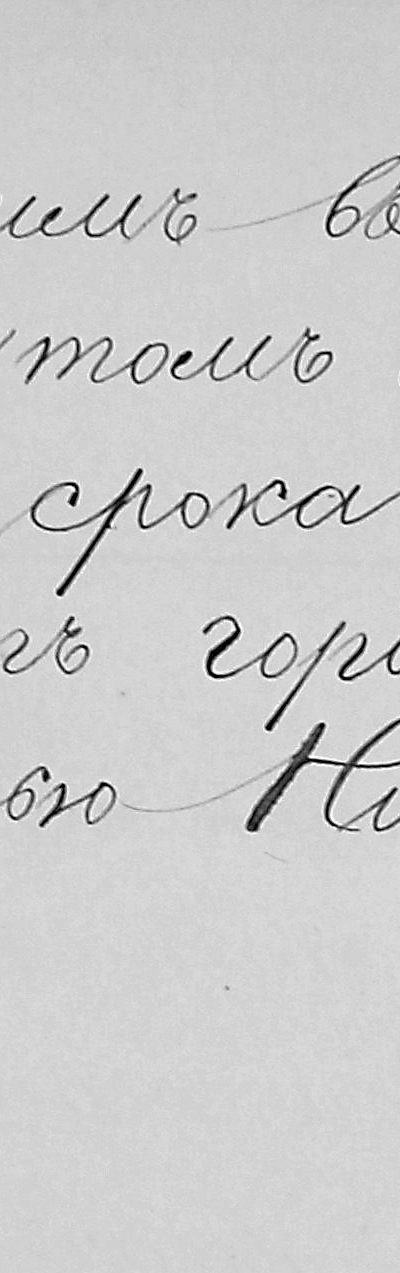 имъ вы
томъ
срока
гъ горо
ью Ни